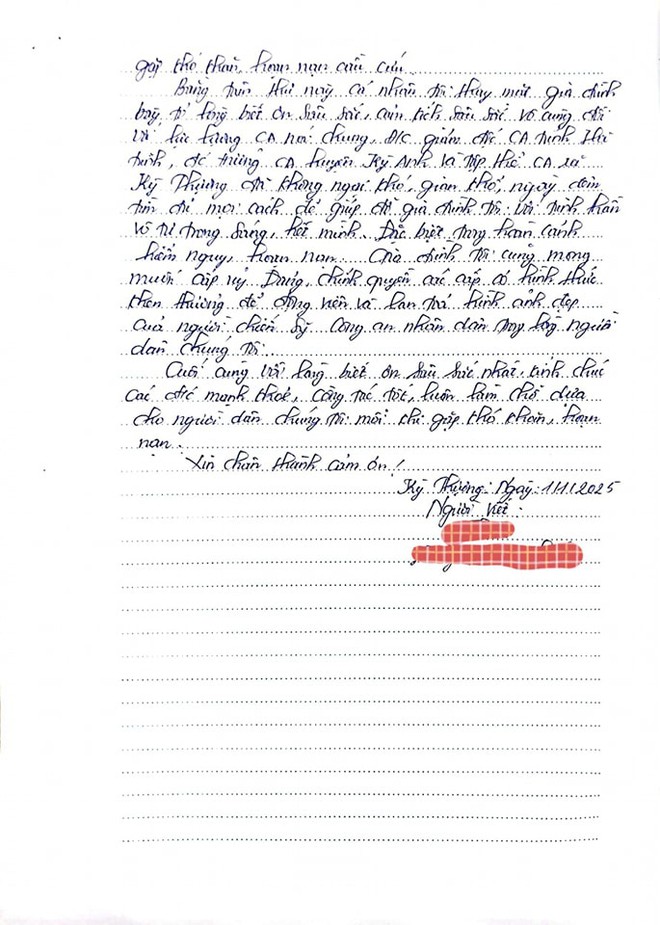 gặp khó khăn, hoạn nạn cần cứu.
Bằng tâm thư này cá nhân tôi thay mặt gia đình
bày tỏ lòng biết ơn sâu sắc, cảm kích sâu sắc vô cùng đối
với lực lượng CA nói chung, Đ/C giám đốc CA tỉnh Hà
Tĩnh, đ/c trưởng CA huyện Kỳ Anh và tập thể CA xã
Kỳ Thượng đã không ngại khó, gian khổ, ngày đêm
tìm đủ mọi cách để giúp đỡ gia đình tôi với tinh thần
vô tư trong sáng, hết mình. Đặc biệt trong hoàn cảnh
hiểm nguy, hoạn nạn. Gia đình tôi cũng mong
muốn cấp uỷ Đảng, chính quyền các cấp có hình thức
khen thưởng để động viên và lan toả hình ảnh đẹp
của người chiến sỹ Công an nhân dân trong lòng người
dân chúng tôi.
Cuối cùng với lòng biết ơn sâu sắc nhất, kính chúc
các đ/c mạnh khoẻ, công tác tốt, luôn làm chỗ dựa
cho người dân chúng tôi mỗi khi gặp khó khăn, hoạn
nạn.
Xin chân thành cảm ơn!
Kỳ Thượng. Ngày 1/1/2025
Người viết.